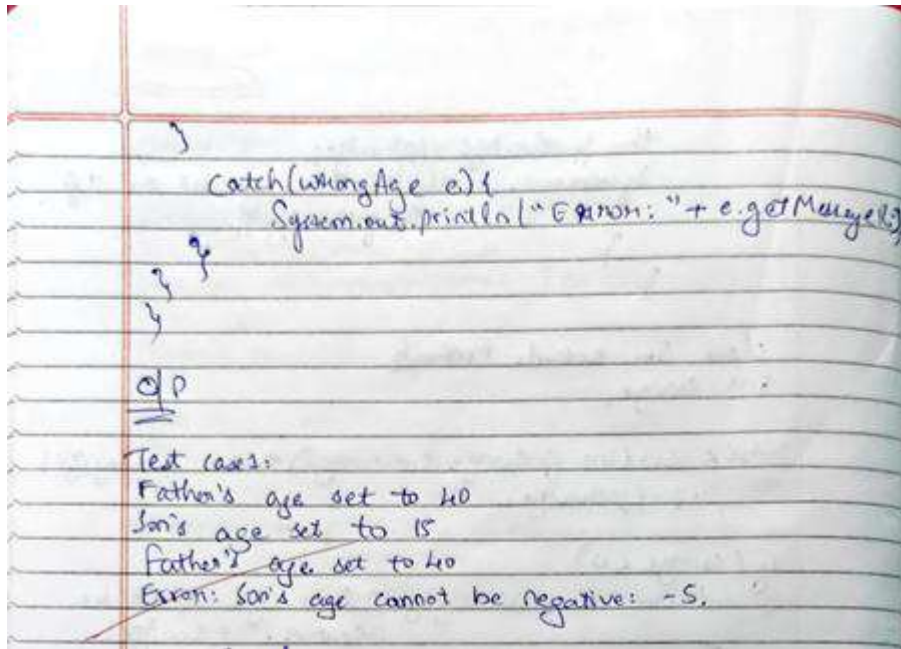 }
catch(WrongAge e) {
System.out.println("Error: " + e.getMessage());
}
}
}
O/P
Test cases:
Father's age set to 40
Son's age set to 15
Father's age set to 40
Error: Son's age cannot be negative: -5.